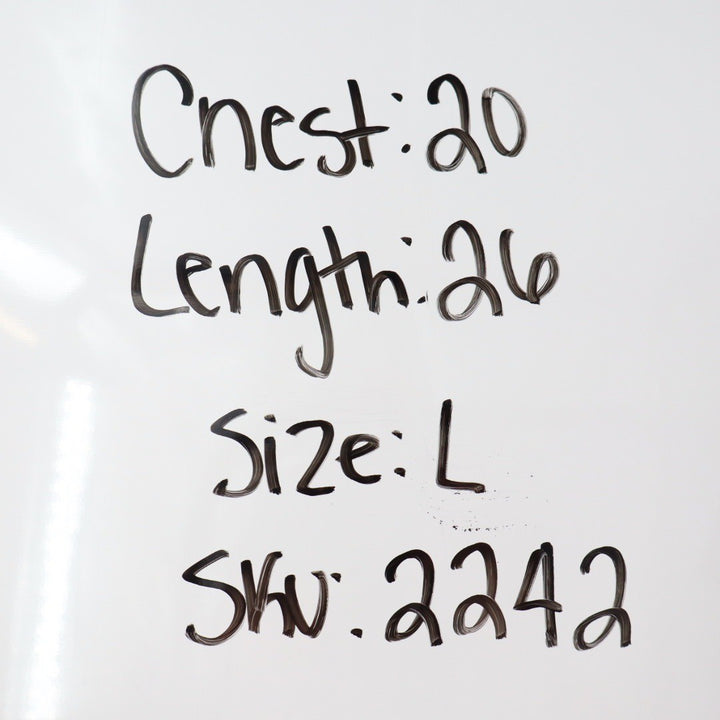 Chest: 20
Length: 26
Size: L
SKU: 2242